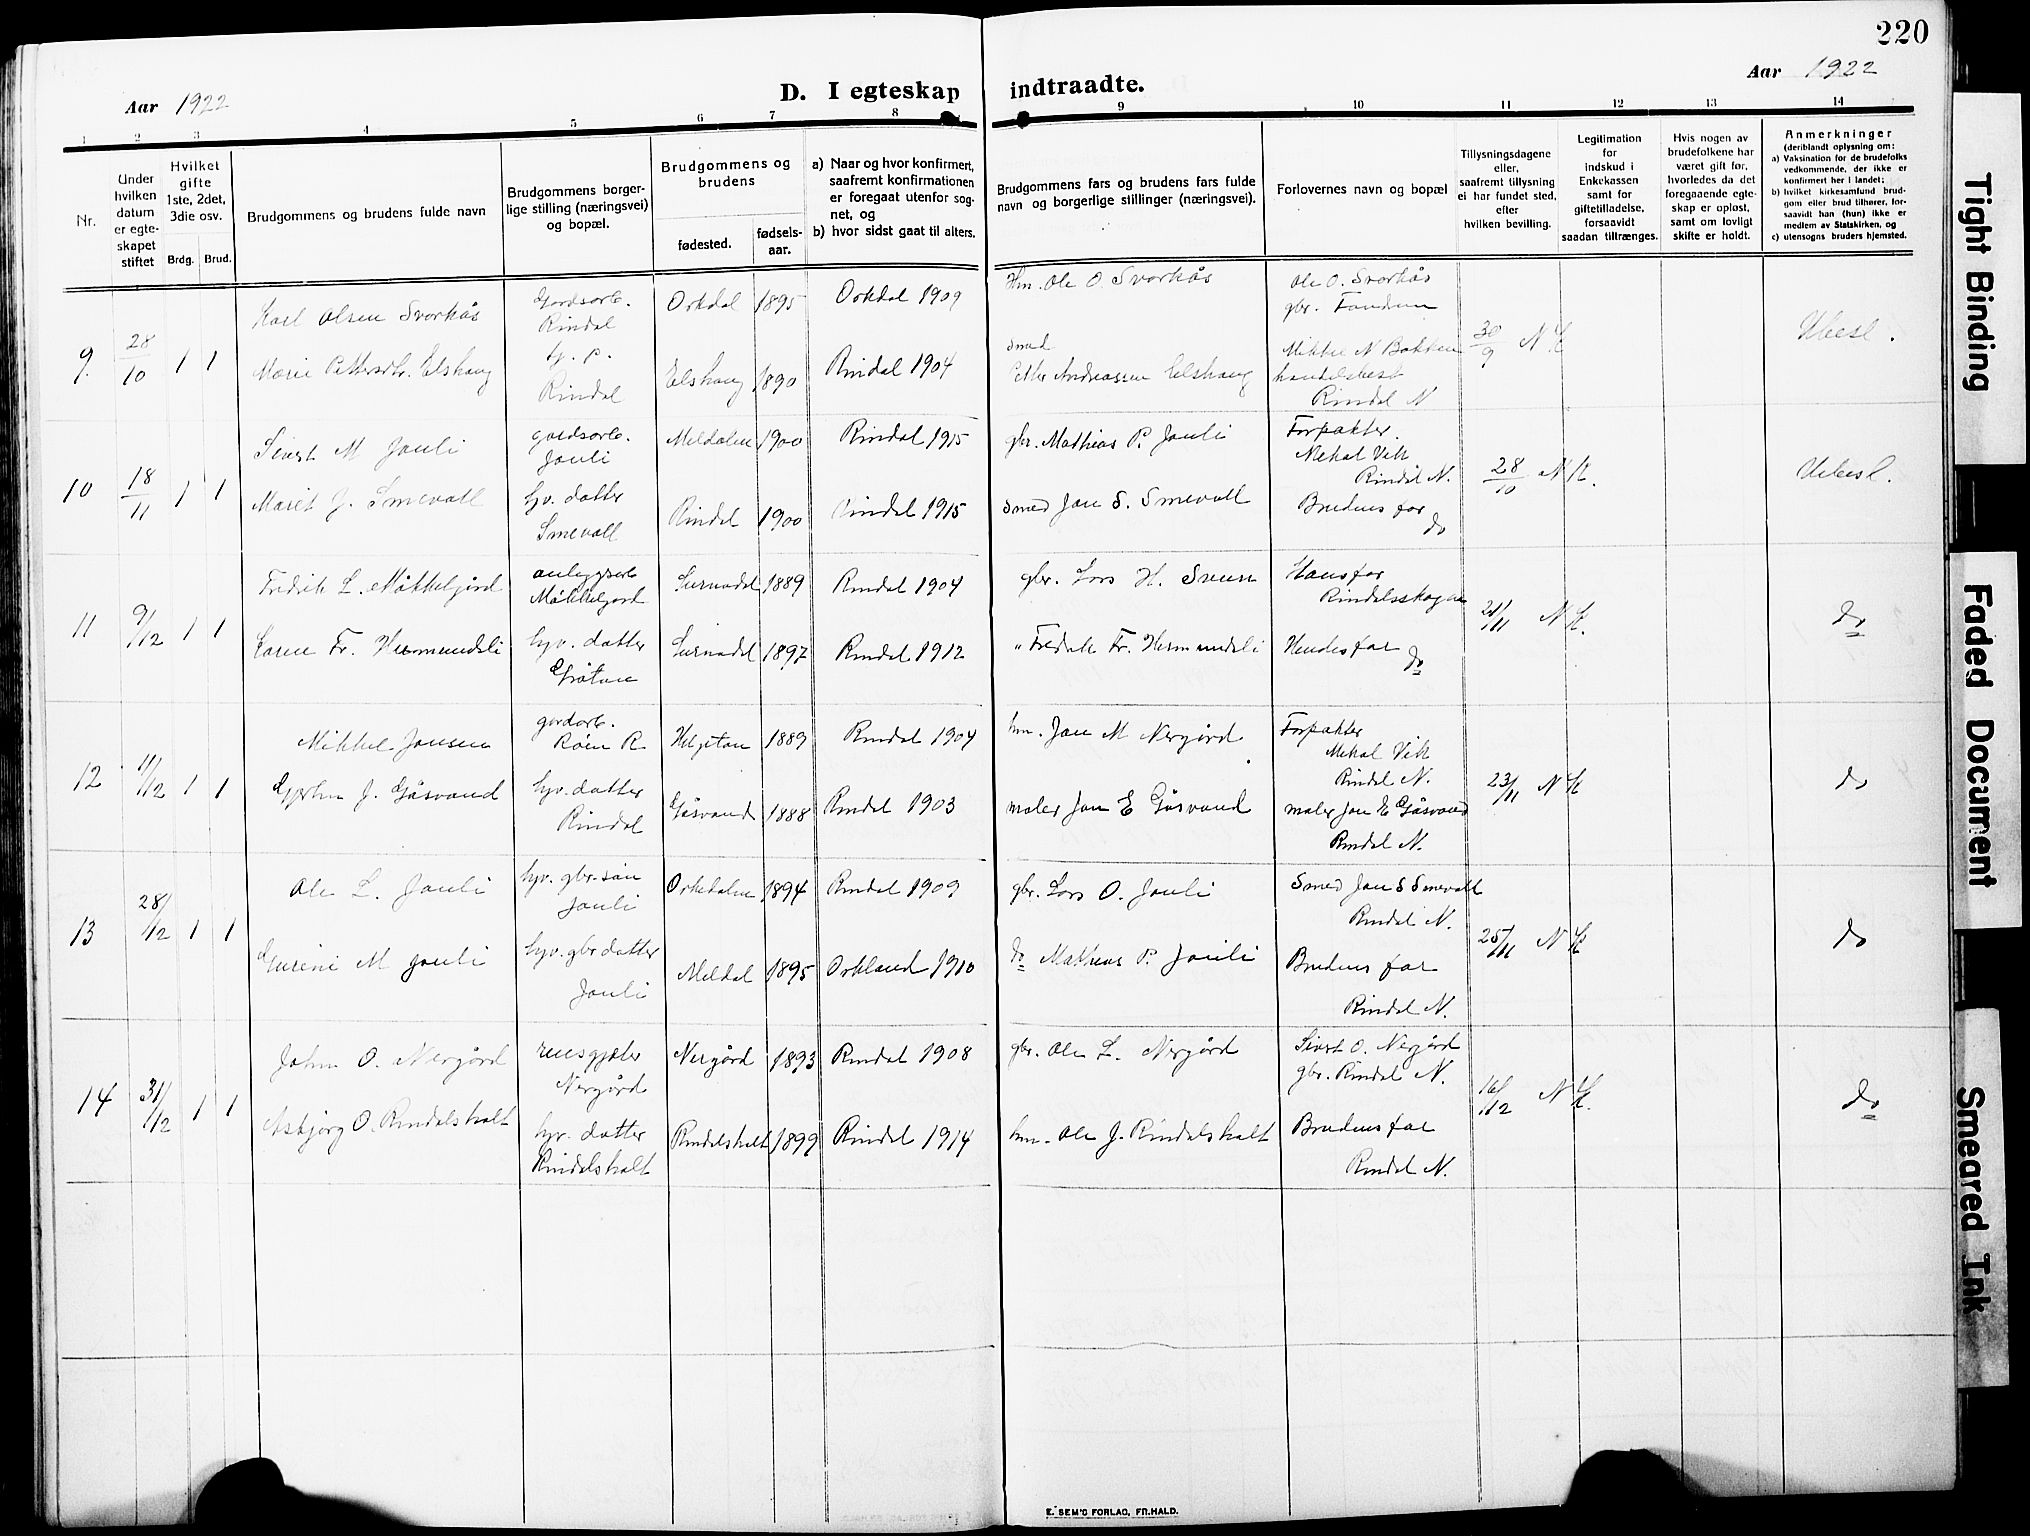 220
Aar 1922
D. I egteskap indtraadte.
Aar 1922
1 2 3 4 5 6 7 8 9 10 11 12 13 14
Nr.
Under hvilken datum er egte-skapet stiftet
Hvilket gifte 1ste, 2det, 3die osv.
Brdg. Brud.
Brudgommens og brudens fulde navn
Brudgommens borger-lige stilling (næringsvei) og bopæl.
Brudgommens og brudens
fødested.
fødsels-aar.
a) Naar og hvor konfirmert, saafremt konfirmationen er foregaat utenfor sog-net, og
b) hvor sidst gaat til alters.
Brudgommens fars og brudens fars fulde navn og borgerlige stillinger (næringsvei).
Forlovernes navn og bopæl
Tillysningsdagene eller, saafremt tillysning ei har fundet sted, efter hvilken bevilling.
Legitimation for indskud i Enkekassen samt for giftetilladelse, forsaavidt saadan tiltrænges.
Hvis nogen av brudefolkene har været gift før, hvorledes da det foregaaende egte-skap er opløst, samt om lovligt skifte er holdt.
Anmerkninger
(deriblandt oplysning om:
a) Vaksination for de brudefolks vedkommende, der ikke er konfirmert her i landet;
b) hvilket kirkesamfund brud-gom eller brud tilhører, for-saavidt han (hun) ikke er medlem av Statskirken, og
c) utensogns bruders hjemsted.
9. 28/10 1 1
Karl Olsen Svorkås
Gardsarb. Rindal
Orkdal 1895
Orkdal 1909
Hm. Ole O. Svorkås
Ole O. Svorkås
gbr.
30/9 N K
Ubesl.
Marie Pettersdtr. Elshaug
Rindal
Elshaug 1890
Rindal 1904
smed
Petter Andreassen Elshaug
Mikkel N Bakken
handelsbest
Rindal N
10 18/11 1 1
Sivert M Jauli
gardsarb.
Jauli
Meldalen 1900
Rindal 1915
gbr. Mathias P. Jauli
Forpakter.
Mekal Vik
Rindal N.
28/10 N K.
Ubesl.
Marit J. Smevoll
hjv. datter
Smevoll
Rindal 1900
Rindal 1915
smed Jon S. Smevoll
Brudens far
do
11 9/12 1 1
Fredrik L. Mikkelgjård
anlegsarb
Mikkelgård
Surnadal 1889
Rindal 1904
gbr. Lars H.
Hans far
Rindalsskogen
21/11 N K.
do
Karen Fr. Hermundsli
hjv. datter
Gråtan
Surnadal 1897
Rindal 1912
" Fredrik Fr. Hermundsli
Hendes far
do
12 11/12 1 1
Mikkel Jonsen
gardarb.
Røen R.
Helgetun 1889
Rindal 1904
hm. Jon M Nergård
Forpakter
Mekal Vik
Rindal N.
23/11 N K
do
J. Gåsvand
hjv. datter
Rindal
Gåsvand 1888
Rindal 1903
maler Jon E Gåsvand
maler Jon E Gåsvand
Rindal N.
13 28/12 1 1
Ole L. Jauli
hjv. gbr. søn
Jauli
Orkedalen 1894
Rindal 1909
gbr. Lars O. Jauli
Smed Jon S Smevoll
Rindal N.
25/11 N K
do
Gurine M Jauli
hjv. gbr datter
Jauli
Meldal 1895
Orkland 1910
do Mathias P. Jauli
Brudens far
Rindal N.
14 31/12 1 1
John O. Nergård
rensgjæter
Nergård
Nergård 1893
Rindal 1908
gbr. Ole L. Nergård
Sivert O. Nergård
gbr. Rindal N.
16/12 N K.
do
Asbjørg O. Rindalsholt
hjv. datter
Rindalsholt
Rindalsholt 1899
Rindal 1914
hm. Ole J. Rindalsholt
Brudens far
Rindal N.
E. SEM'S FORLAG, FR.HALD.
Tight Binding
Faded Document
Smeared Ink